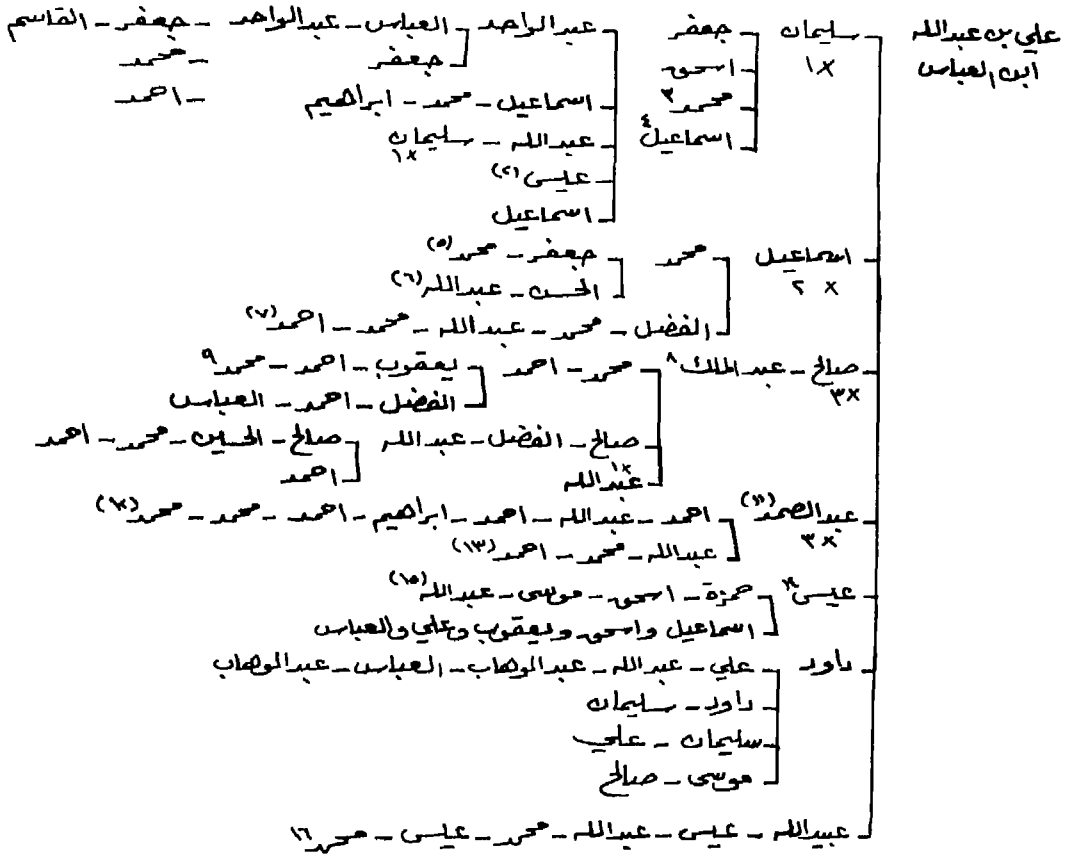 علي بن عبدالله - سليمان - جعفر - عبدالواحد - العباس - عبدالواحد - جعفر - القاسم
ابن العباس ×١ - اسحق - جعفر - محمد
- محمد ٣ - اسماعيل - محمد - ابراهيم - احمد
- اسماعيل ٤ - عبدالله - سليمان
×١
- عيسى (٢)
- اسماعيل
- اسماعيل - محمد - جعفر - محمد (٥)
× ٢ - الحسن - عبدالله (٦)
- الفضل - محمد - عبدالله - محمد - احمد (٧)
- صالح - عبد الملك ٨ - محمد - احمد - يعقوب - احمد - محمد ٩
×٣ - الفضل - احمد - العباس
- صالح - الفضل - عبدالله - صالح - الحسين - محمد - احمد
- عبدالله - احمد
- عبدالصمد (١١) - احمد - عبدالله - احمد - ابراهيم - احمد - محمد - محمد (١٢)
×٣ - عبدالله - محمد - احمد (١٣)
- عيسى - حمزة - اسحق - موسى - عبدالله (١٥)
- اسماعيل واسحق ويعقوب وعلي والعباس
- داود - علي - عبدالله - عبدالوهاب - العباس - عبدالوهاب
- داود - سليمان
- سليمان - علي
- موسى - صالح
- عبيدالله - عيسى - عبدالله - محمد - عيسى - محمد ١٦